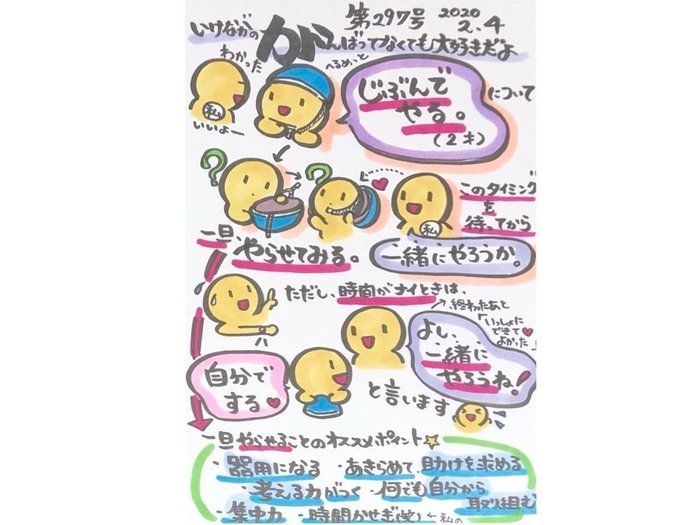 第297号 2020 2.4
いけながの がんばってなくても大好きだよ
わかった
へるめっと
私
いいよー
じぶんで
やる。
(2才)
について
このタイミング
を
待ってから
私
一緒にやろうか。
一旦、やらせてみる。
ただし、時間がナイときは、
終わったあと
「いっしょに
できて
よかった♥」
よし、
一緒に
やろうね!
自分で
する♥
と言います
一旦やらせることのオススメポイント☆
・器用になる ・あきらめて、助けを求める
・考える力がつく ・何でも自分から
取り組む
・集中力 ・時間かせぎ(笑) ←私の